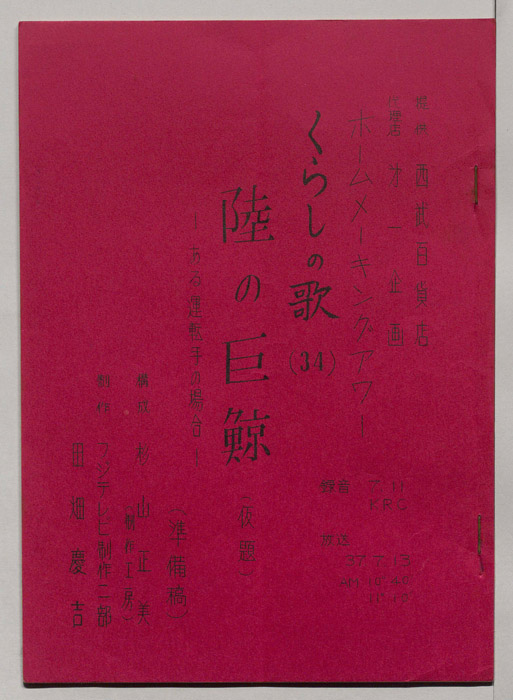 提供 西武百貨店
第一企画
ホームメーキングアワー
くらしの歌(34)
陸の巨鯨
(仮題)
―ある運転手の場合―
(準備稿)
構成 杉山正美
制作 フジテレビ制作二部
田畑慶吉
録音 7.11
KRC
放送
37.7.13